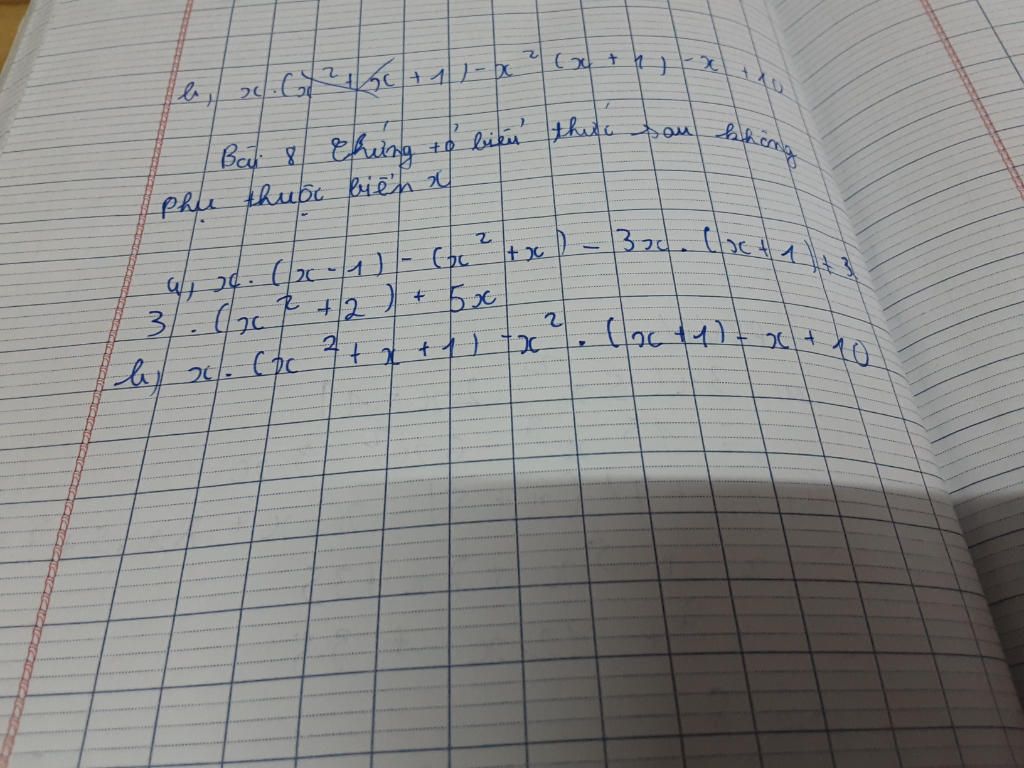 b, x.(x²+x+1)-x²(x+1)-x+10
Bài 8 Chứng tỏ biểu thức sau không
phụ thuộc biến x
a, x.(x-1)-(x²+x)-3x.(x+1)+3
3.(x²+2)+5x
b, x.(x²+x+1)-x².(x+1)-x+10